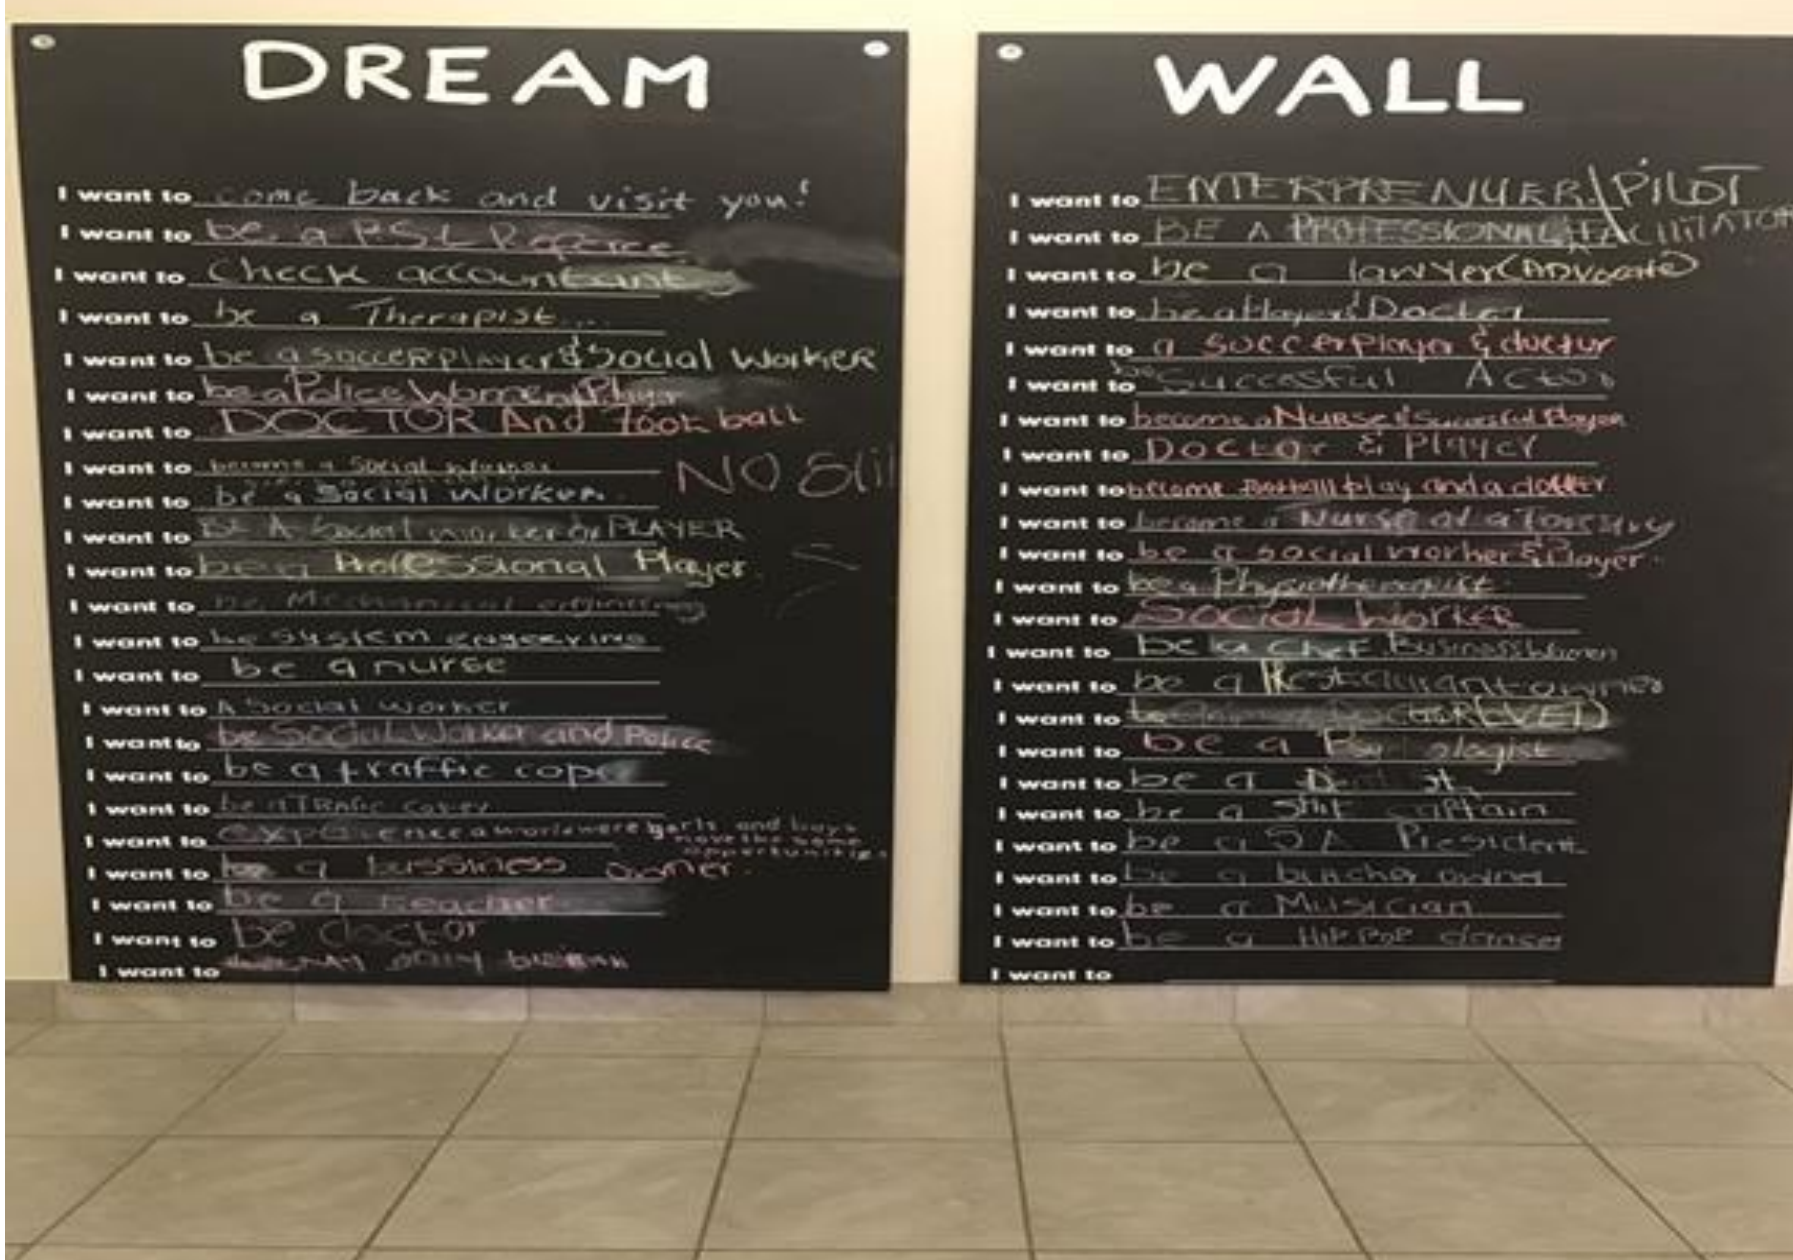 DREAM
I want to come back and visit you!
I want to be a PSL Referee
I want to Check accountant
I want to be a Therapist...
I want to be a soccer player & Social Worker
I want to be a Police Women/Player
I want to DOCTOR And Football
I want to become a Social
NO
I want to be a Social Worker.
I want to BE A Social worker or PLAYER
I want to be a Professional Player.
I want to be Mechanical
I want to be system
I want to be a nurse
I want to A Social worker
I want to be Social Worker and Police
I want to be a traffic cop
I want to be a
I want to a and boys
have the same
opportunities
I want to be a bussiness owner.
I want to be a teacher
I want to be doctor
I want to
WALL
I want to ENTERPRENUER/PILOT
I want to BE A PROFESSIONAL
I want to be a lawyer (ADVocate)
I want to be a Player & Doctor
I want to a soccer player & doctor
I want to be Successful Actor
I want to become a Nurse & Successful Player
I want to Doctor & Player
I want to become football play and a
I want to become a Nurse
I want to be a social worker & Player
I want to be a Physiotherapist
I want to SOCIAL WORKER
I want to be a Chef
I want to be a Restaurant owner
I want to
I want to be a
I want to be a
I want to be a captain
I want to be a SA President
I want to be a owner
I want to be a Musician
I want to be a
I want to